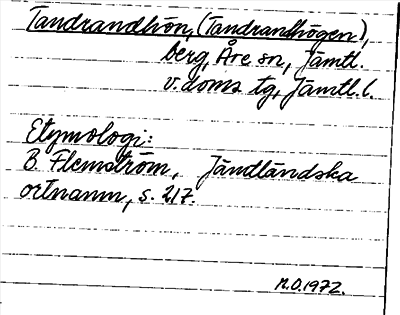 Tandrandhôn, (Tandrandhögen),
berg, Åre sn, Jämtl.
v. doms tg, Jämtl. l.
Etymologi:
B. Flemström, Jämtländska
ortnamn, s. 217.
M.O. 1972.